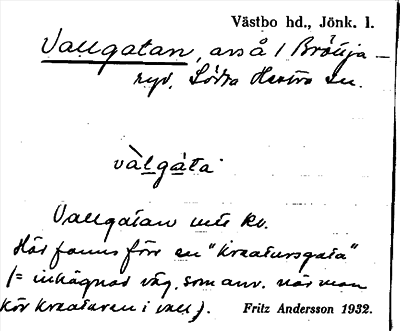 Västbo hd., Jönk. l.
Vallgatan, avså / Bröttja-
ryd, Södra Hestra sn.
vàlgàta
Vallgatan utr kv.
Här fanns förr en "kreatursgata"
(= inhägnad väg, som anv. när man
kör kreaturen i vall).
Fritz Andersson 1932.